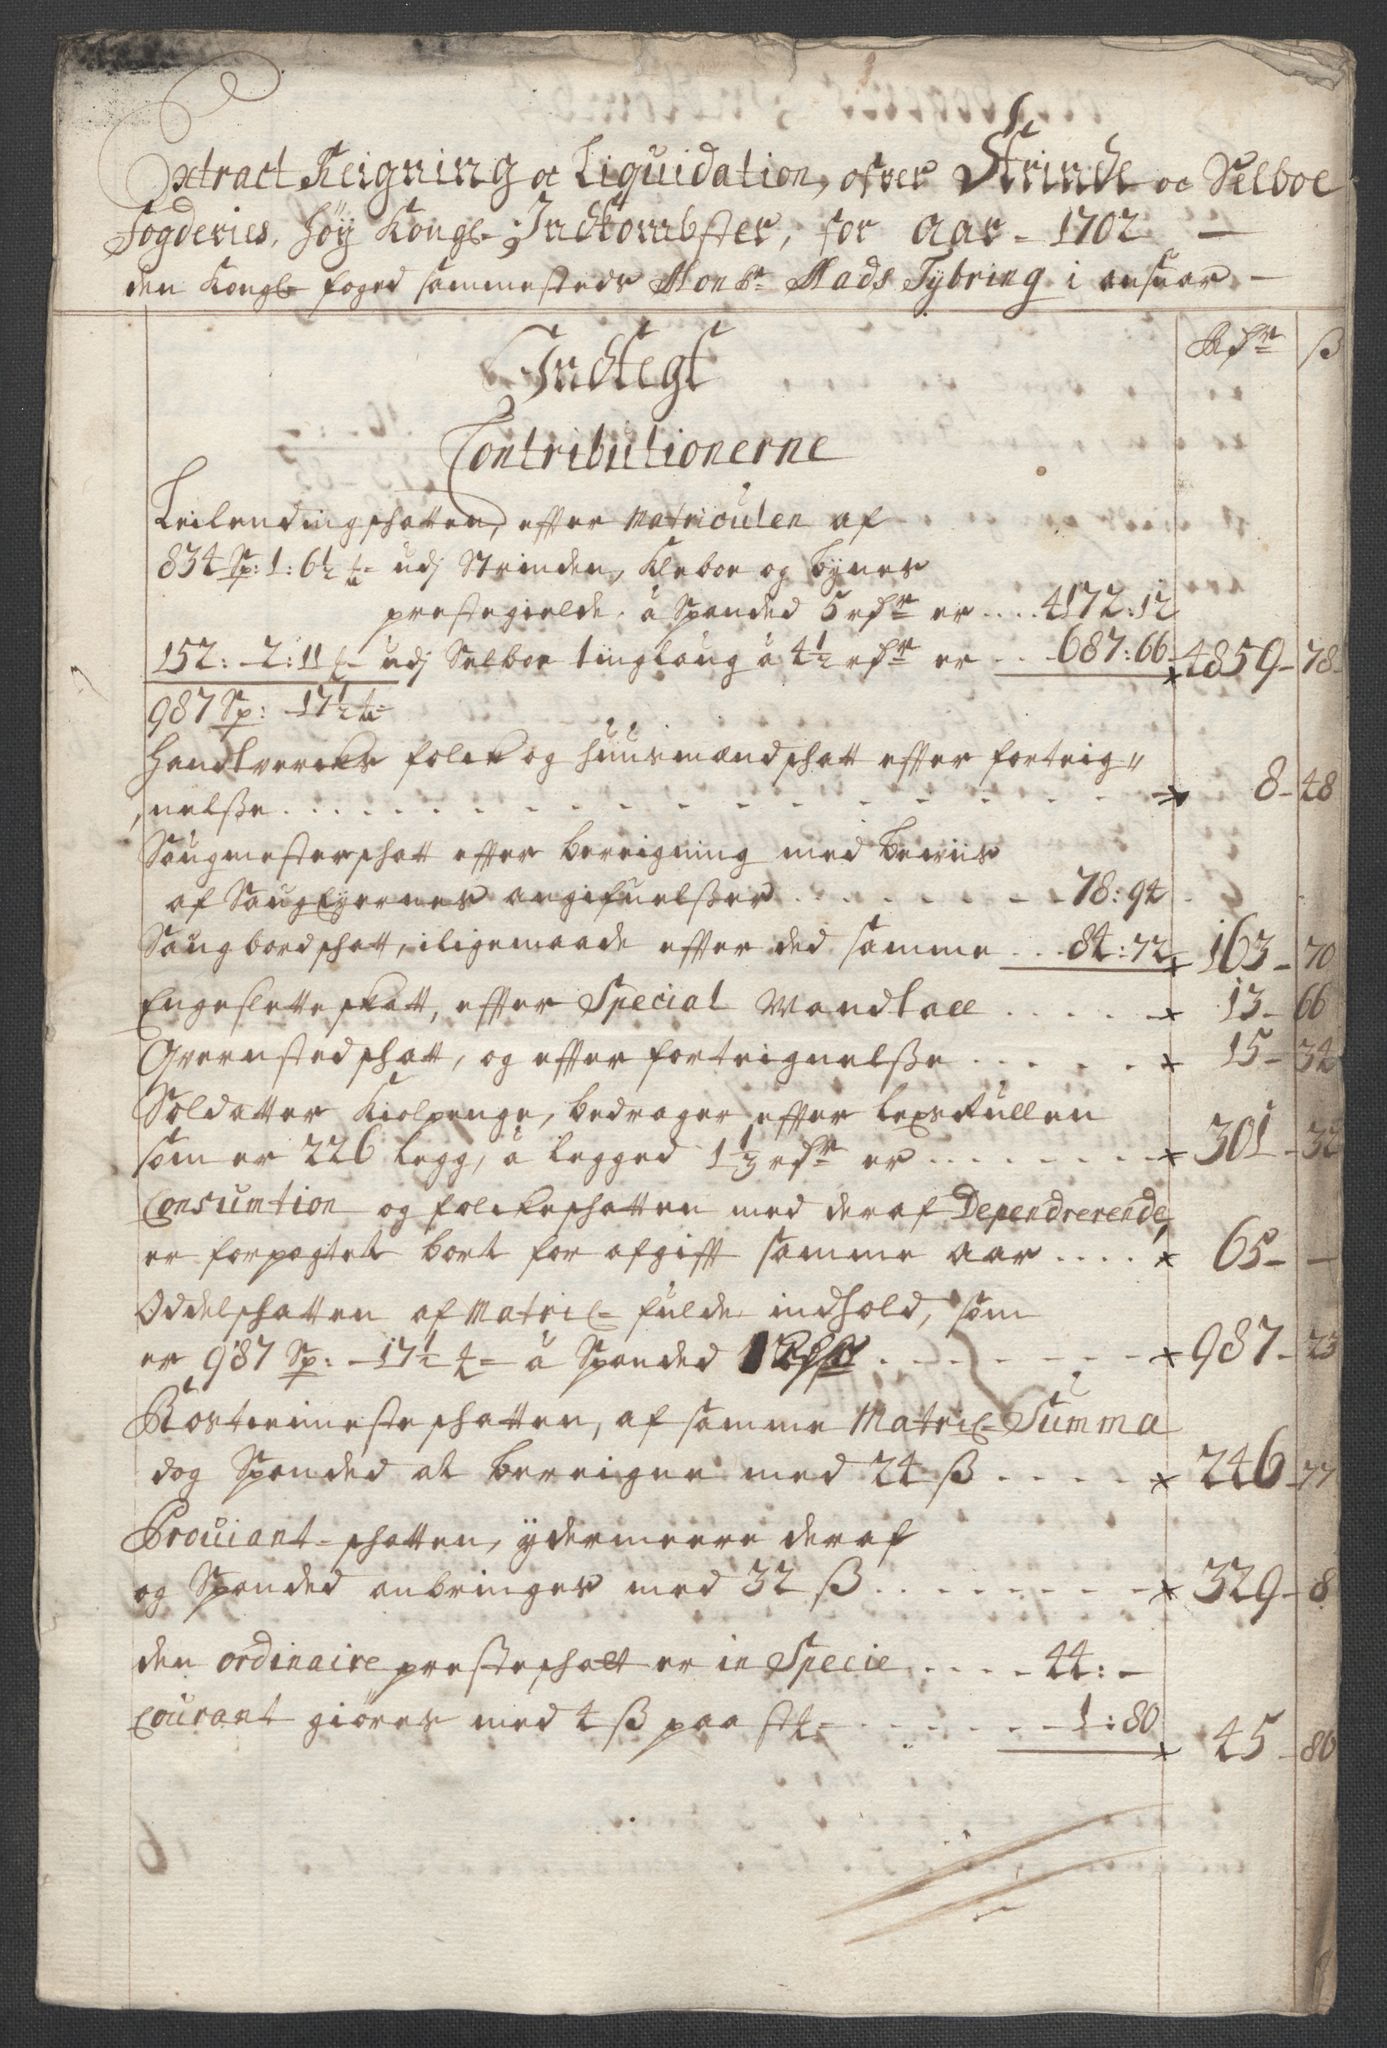 Extract Reigning oc Liquidation, ofver Strinde oc Selboe
Fogderies, Høy Kongl- Indkombster, for Aar - 1702 -
den Kongl- foged sammesteds Monsr- Mads Tybring i ansuar -
Rdr ß
Indtegt
Contributionerne
Leilendingschatten, effter Matriculen af
834 Sp: 1: 6½ udj Strinden, Klæboe og Bynes
prestegielde, â Spanded 5 rdr er .... 4172:12
152: - 2: 11 udj Selboe tinglaug â 4½ rdr er ... 687:66 4859-78
987 Sp: - 17½
Handtvercks folck og huusmændschatt effter forteig=
nelße .......... 8-48
Saugmesterschatt effter bereigning med beviis
af Saugeyernes angifuelßer ...... 78:94
Saugbordschatt, iligemaade effter ded samme ... 84:72 163-70
Engesletteskatt, effter Special Mandtall ..... 13-66
Qvernstedschatt, og effter forteignelße ..... 15-34
Soldatter Kiolpenge, bedrager effter lexsRullen
som er 226 legg, â legged 1⅓ rdr er ....... 301-32
Consumtion og folckeschatten med deraf Dependrerende
er forpagtet bort for afgift samme aar .... 65--
Oddelschatten af Matricl- fulde indhold, som
er 987 Sp: - 17½ â Spanded 1 Rdr ....... 987-23
Rostieniesteschatten, af samme Matricl- Summa
dog Spanded at bereigne med 24 ß ..... 246-77
Proviant-schatten, ydermeere deraf
og Spanded anbringes med 32 ß ........ 329-8
den ordinaire presteschatt er in Specie .... 44:-
Courant giøres med 4 ß paa st- ....... 1:80 45-80
6